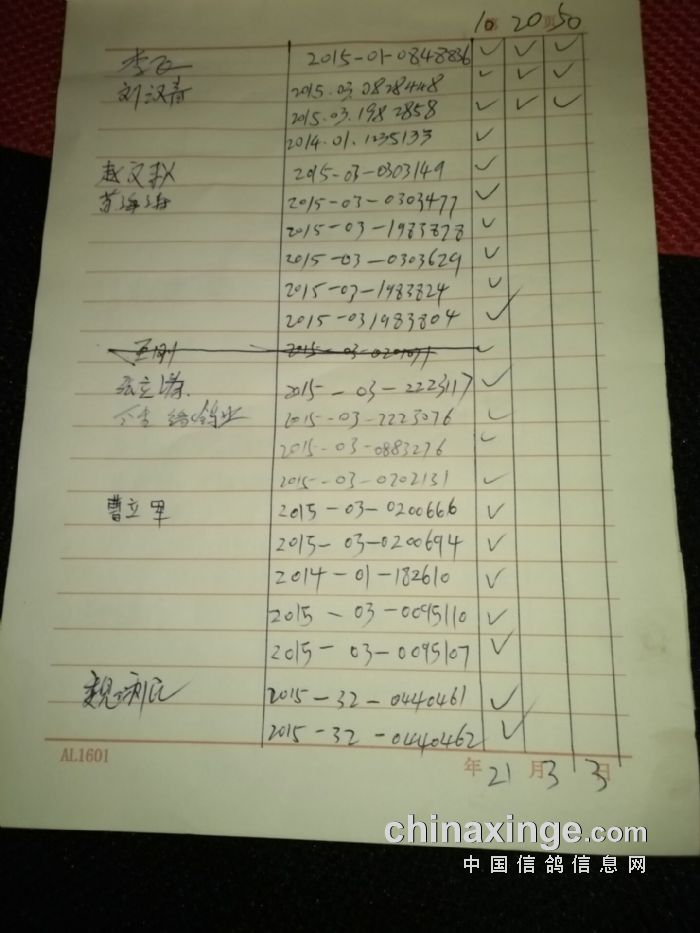 10 20 50
李飞 2015-01-0848836
刘汉青 2015.03.0828448
2015.03.1982858
2014.01.1235133
赵文 2015-03-0303149
苏海海 2015-03-0303477
2015-03-1983828
2015-03-0303629
2015-03-1983824
2015-031983804
王刚
张立涤 2015-03-2223117
鸽业 2015-03-2223076
2015-03-0883276
2015-03-0202131
曹立军 2015-03-0200666
2015-03-0200694
2014-01-182610
2015-03-0095110
2015-03-0095107
魏利民 2015-32-0440461
2015-32-0440462
AL1601 年 月 日
21 3 3
chinaxinge.com
中国信鸽信息网